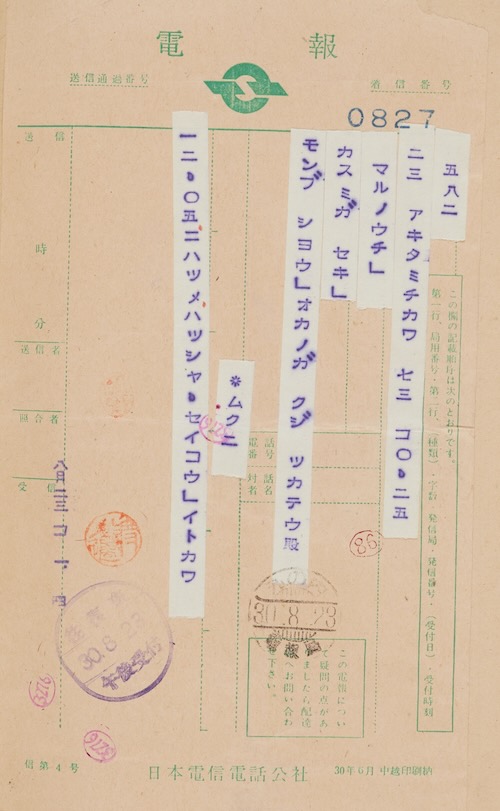 電報
送信通過番号
着信番号
0827
五八二
二三 アキタミチカワ 七三 コ〇・二五
マルノウチ」
カスミガ セキ」
モンブ シヨウ」オカノガ クジ ツカテウ殿
※ムク二
一二・〇五ニハツメハツシヤ・セイコウ」イトカワ
この欄の記載順序は次のとおりです。
第一行、局用番号・第二行、(種類)・字数・発信局・発信番号・(受付日) 受付時刻
送信
時
分
送信者
照合者
受信
八月二三コ
電話
番号
通話
対者名
この電報につい
て疑問の点があ
りましたら配達
局へお問い合わ
せ下さい。
30.8.23
30.8.23
午後
86
信第4号
日本電信電話公社
30年6月 中越印刷納